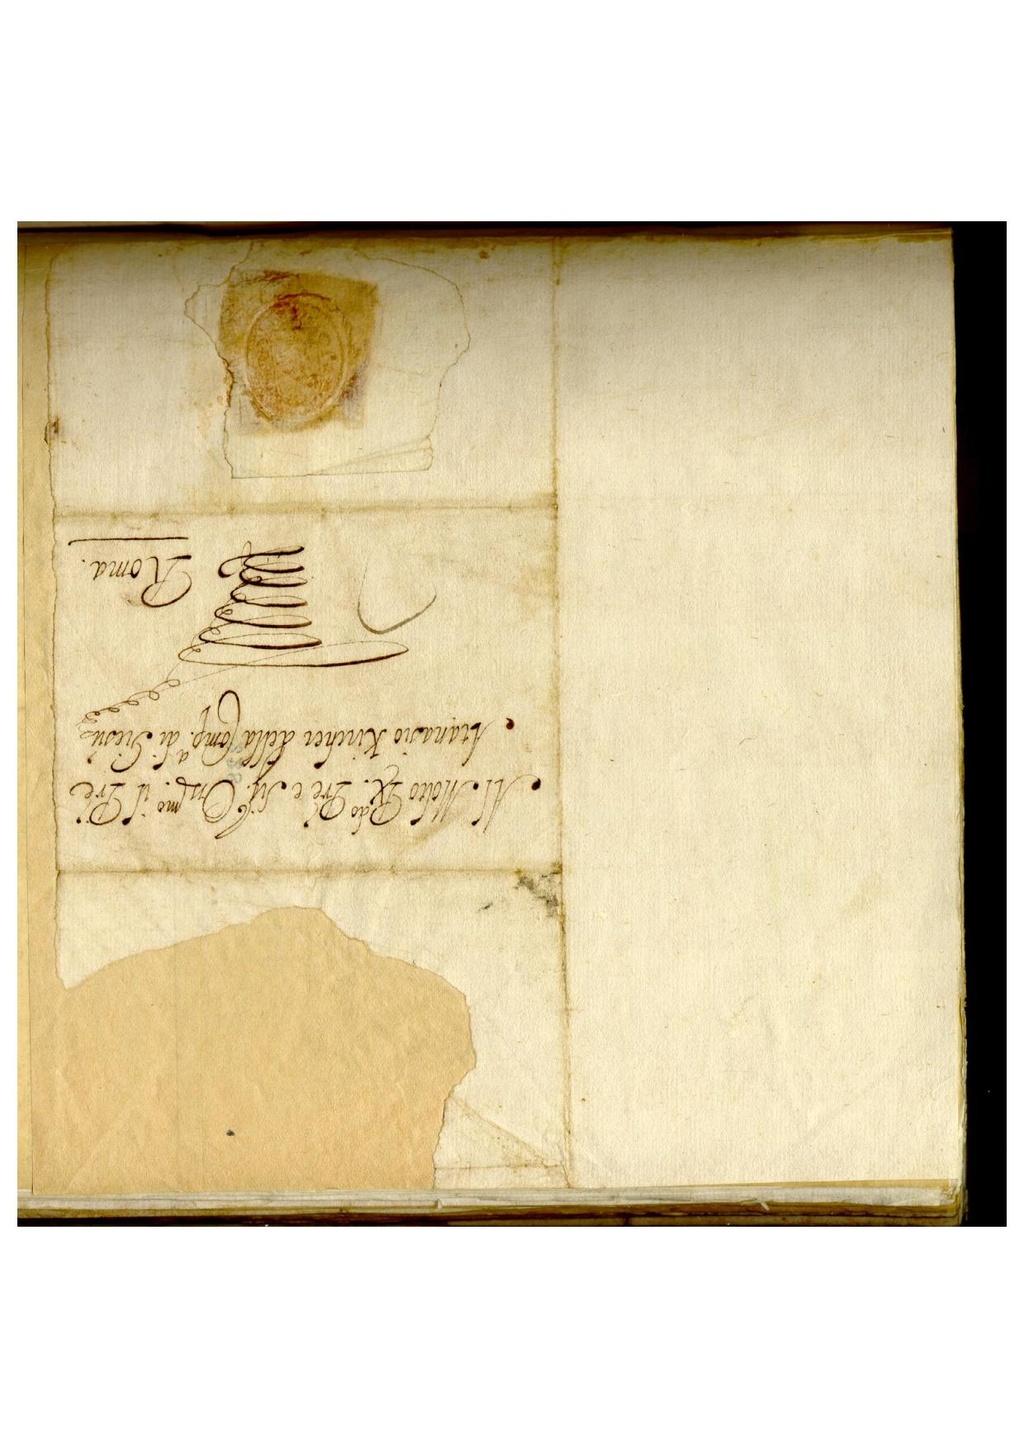 Al Molto R.do Prê e Sig. Oss.mo il Prê
Atanasio Kircher della Comp.a di Giesù
Roma.